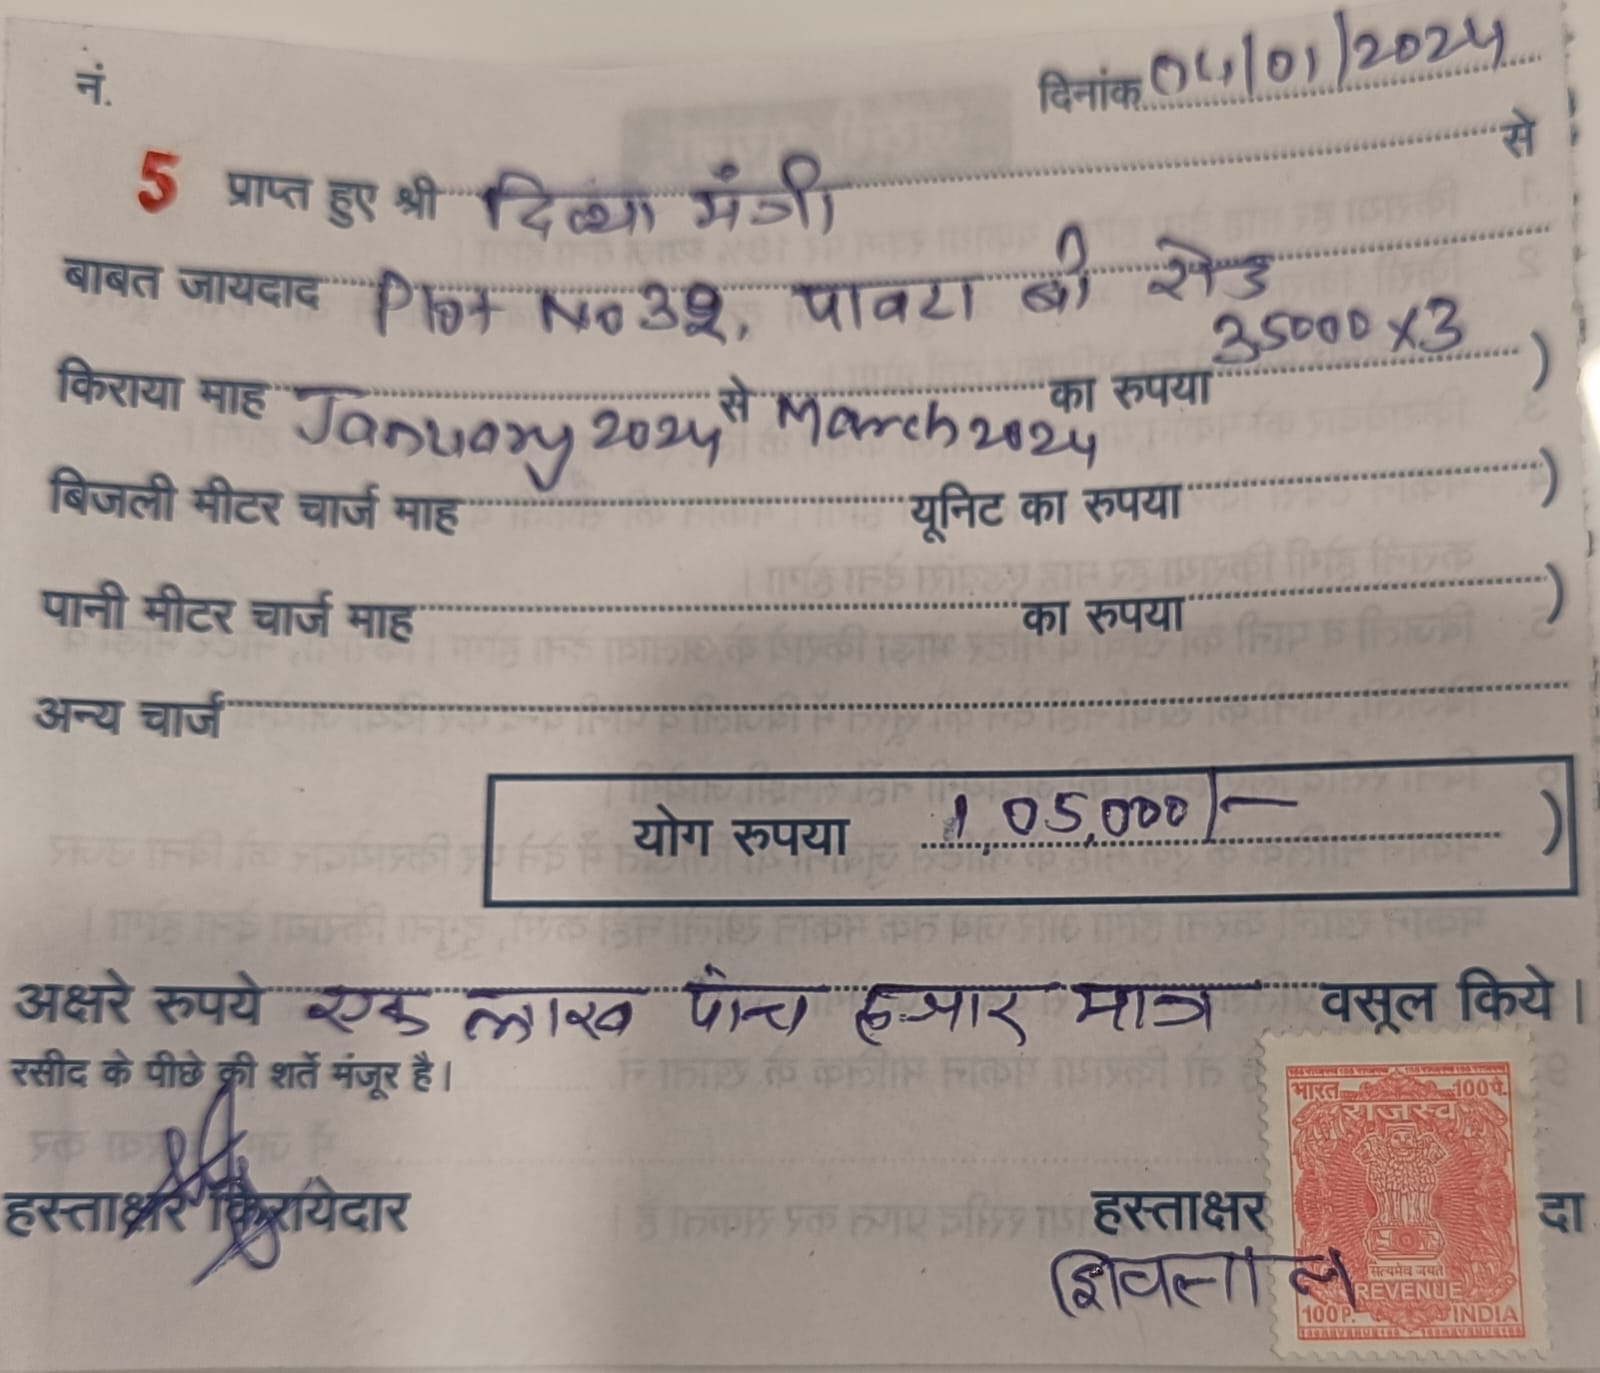 नं. दिनांक 04/01/2024
5 प्राप्त हुए श्री दिव्या मंत्री से
बाबत जायदाद Plot No 32, पावटा बी रोड
किराया माह January 2024 से March 2024 का रुपया 35000 x 3 )
बिजली मीटर चार्ज माह यूनिट का रुपया )
पानी मीटर चार्ज माह का रुपया )
अन्य चार्ज
योग रुपया 1,05,000/- )
अक्षरे रुपये एक लाख पांच हजार मात्र वसूल किये।
रसीद के पीछे की शर्ते मंजूर है।
हस्ताक्षर किरायेदार हस्ताक्षर दा
शिवलाल
भारत 100 पै.
राजस्व
सत्यमेव जयते
REVENUE
100 P. INDIA